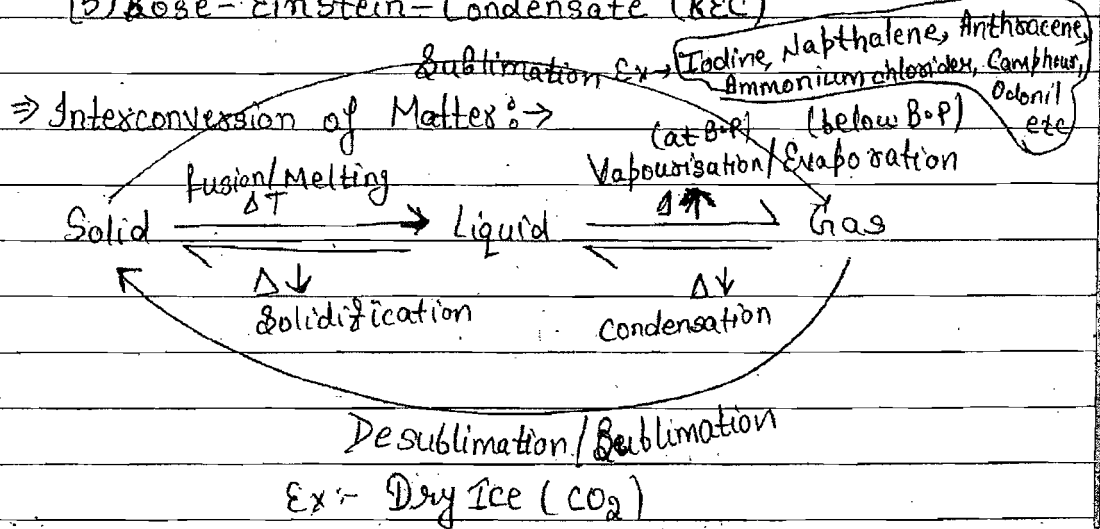 (5) Bose-Einstein-Condensate (BEC)
Sublimation Ex→ Iodine, Napthalene, Anthracene,
Ammonium chlorides, Camphour,
Odonil
etc
⇒ Interconversion of Matter:→
(at B.P) (below B.P)
Fusion/Melting Vapourisation/Evaporation
Solid Liquid Gas
Δ↓ Δ↓
Solidification Condensation
Desublimation/Sublimation
Ex:- Dry Ice (CO₂)